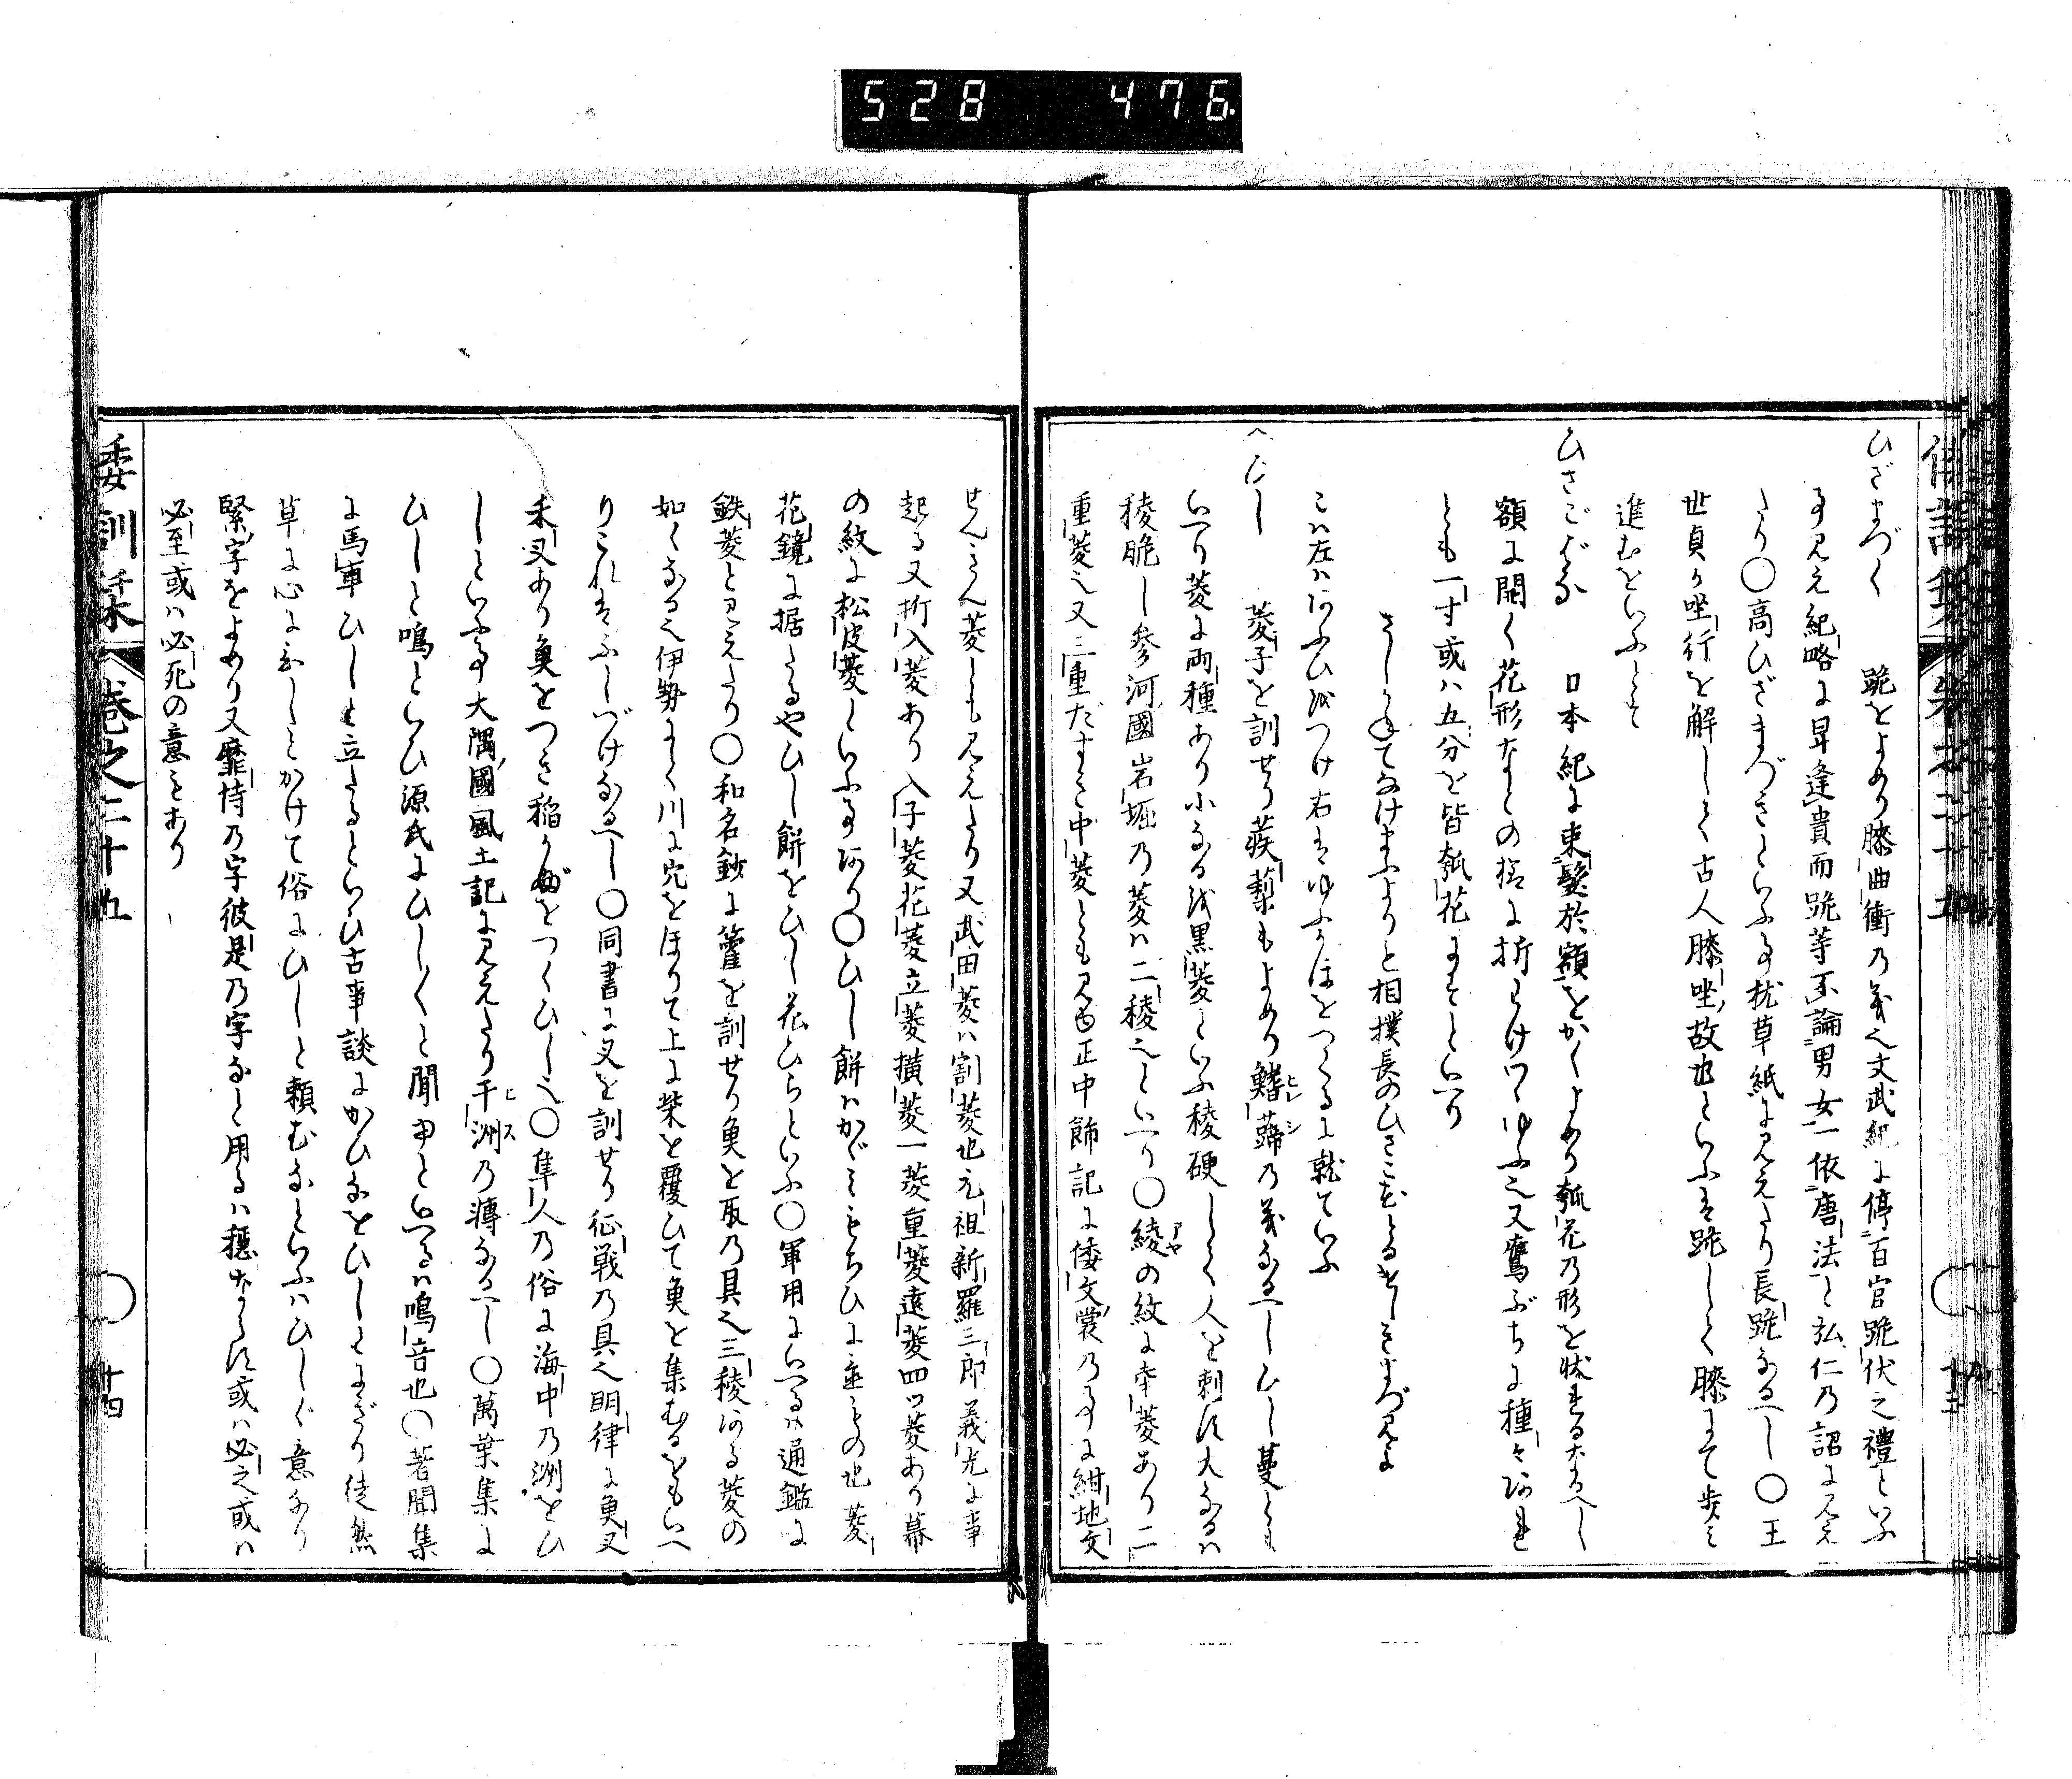 528 476
ひざまづく 跪をよめり膝曲衝乃義也文武紀に停百官跪伏之禮といふ
事見え紀略に卑逢貴而跪等不論男女一依唐法と弘仁乃詔に見え
たり○高ひざまづきといふ事枕草紙に見えたり長跪なるへし○王
世貞か坐行を解して古人膝坐故也といふは跪して膝にて歩み
進むをいふとそ
ひさごばな 日本紀に束髪於額をかくよめり瓠花乃形を状れるなるへし
額に開く花形なとの様に折わけつゝゆふ也又鷹ぶちに種々あれ
とも一寸或ハ五分を皆瓠花にすといへり
さしかねてなけまふよりと相撲長のひさこをとるはしをまづ見よ
こハ左ハあふひばつけ右はゆふかほをつくるに就ていふ
へひし 菱子を訓せり蒺蔾もよめり鰭蹄乃義なるへしひし蔓とも
いへり菱に両種あり小なるは黒菱といふ稜硬して人を刺す大なるハ
稜脆し参河國岩堀乃菱ハ二稜也といへり○綾の紋に幸菱あり二
重菱也又三重だすき中菱とも見ゆ正中飾記に倭文裳乃事に紺地文
せんさん菱とも見えたり又武田菱ハ割菱也元祖新羅三郎義光に事
起る又折入菱あり入子菱花菱立菱横菱一菱重菱遠菱四ツ菱あり幕
の紋に松皮菱といふ事あり○ひし餅ハかゞみもちひに重もの也菱
花鏡に据たるやひし餅をひし花ひらといふ○軍用にいへるハ通鑑に
鉄菱と見えたり○和名鈔に籗を訓せり魚を取乃具也三稜ある菱の
如くなる也伊勢にて川に穴をほりて上に柴を覆ひて魚を集むるをもいへ
りこれはふしづけなるへし○同書に叉を訓せり征戦乃具也明律に魚叉
禾叉あり魚をつき稲かぶをつくひし也○隼人乃俗に海中乃洲をひ
しといふ事大隅國風土記に見えたり干洲乃轉なるへし○萬葉集に
ひしと鳴といひ源氏にひしくと聞ゆといへるハ鳴音也○著聞集
に馬車ひしと立たるといひ古事談にかひなをひしとにぎり徒然
草に心にひしとかけて俗にひしと頼むなといふハひしぐ意なり
緊字をよめり又靡恃乃字彼是乃字なと用るハ穏ならす或ハ必之或ハ
必至或ハ必死の意もあり
倭訓栞 巻之二十五 十三
倭訓栞 巻之二十五 十四